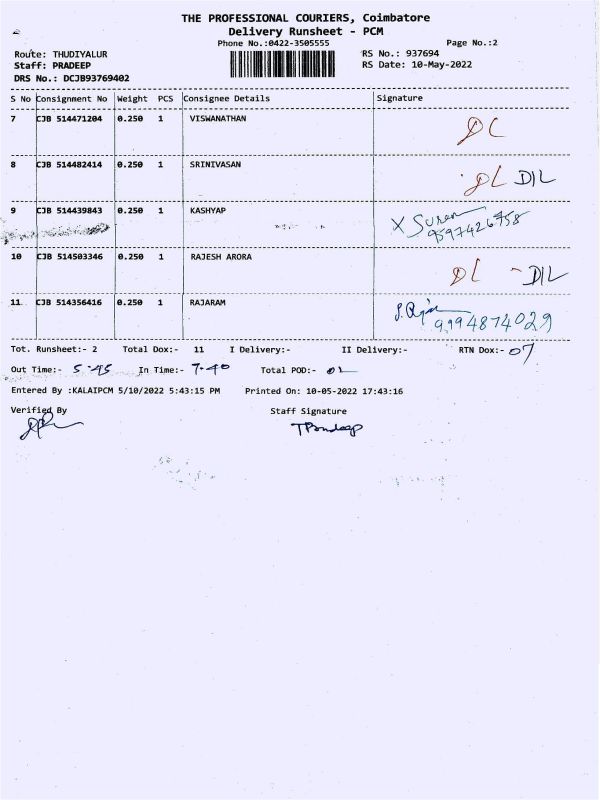 THE PROFESSIONAL COURIERS, Coimbatore
Delivery Runsheet - PCM
Phone No.:0422-3505555 Page No.:2
Route: THUDIYALUR RS No.: 937694
Staff: PRADEEP RS Date: 10-May-2022
DRS No.: DCJB93769402
S No Consignment No Weight PCS Consignee Details Signature
7 CJB 514471204 0.250 1 VISWANATHAN DL
8 CJB 514482414 0.250 1 SRINIVASAN DL D/L
9 CJB 514439843 0.250 1 KASHYAP X Suren
9597426758
10 CJB 514503346 0.250 1 RAJESH ARORA DL - D/L
11 CJB 514356416 0.250 1 RAJARAM
9994874029
Tot. Runsheet:- 2 Total Dox:- 11 I Delivery:- II Delivery:- RTN Dox:- 07
Out Time:- 5-45 In Time:- 7-40 Total POD:-
Entered By :KALAIPCM 5/10/2022 5:43:15 PM Printed On: 10-05-2022 17:43:16
Verified By Staff Signature